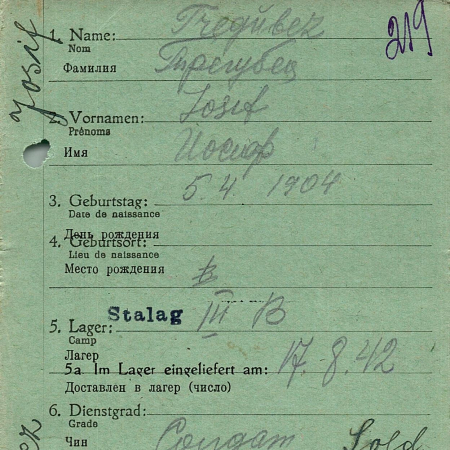 Josif
219
1. Name: Tregubez
Nom
Фамилия Трегубец
2. Vornamen: Iosif
Prénoms
Имя Иосиф
3. Geburtstag: 5.4. 1904
Date de naissance
День рождения
4. Geburtsort:
Lieu de naissance
Место рождения
5. Lager: Stalag III B
Camp
Лагер
5a. Im Lager eingeliefert am: 17.8.42
Доставлен в лагер (число)
6. Dienstgrad:
Grade
Чин Солдат Sold